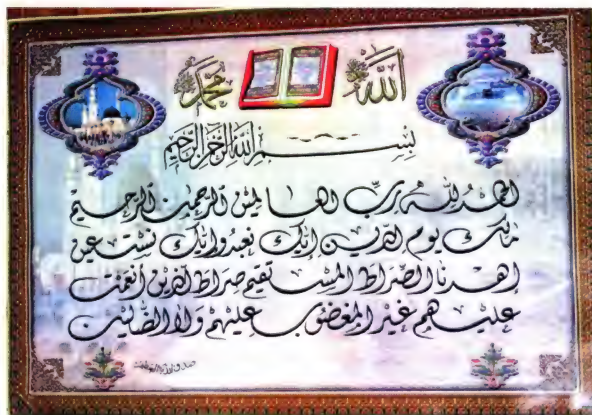 الله
محمد
بسم الله الرحمن الرحيم
الحمد لله رب العالمين الرحمن الرحيم
مالك يوم الدين إياك نعبد وإياك نستعين
اهدنا الصراط المستقيم صراط الذين أنعمت
عليهم غير المغضوب عليهم ولا الضالين